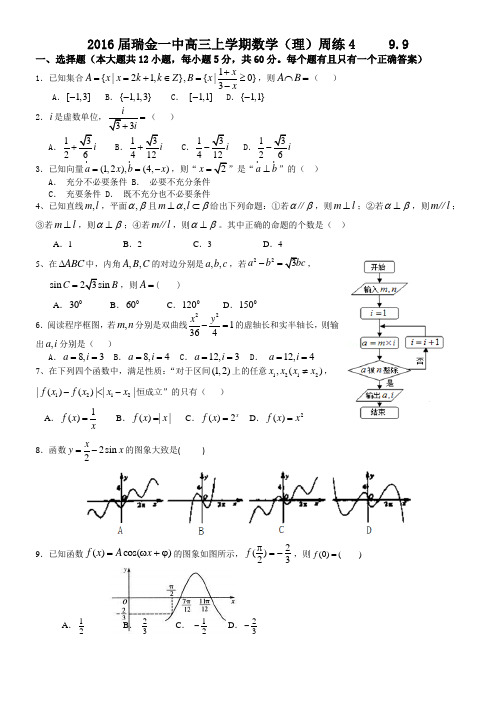 2016届瑞金一中高三上学期数学（理）周练4 9.9
一、选择题（本大题共12小题，每小题5分，共60分。每个题有且只有一个正确答案）
1．已知集合A={x|x=2k+1,k∈Z},B={x|(1+x)/(3−x)≥0}，则A∩B=（ ）
A．[−1,3] B．{−1,1,3} C． [−1,1] D．{−1,1}
2．i是虚数单位，i/(√3+3i)=（ ）
A．1/2+√3/6 i B．1/4+√3/12 i C．1/4−√3/12 i D．1/2−√3/6 i
3．已知向量a=(1,2x),b=(4,−x)，则“x=√2”是“a⊥b”的（ ）
A． 充分不必要条件 B． 必要不充分条件
C． 充要条件 D． 既不充分也不必要条件
4、已知直线m,l，平面α,β且m⊥α,l⊂β给出下列命题：①若α//β，则m⊥l；②若α⊥β，则m//l；
③若m⊥l，则α⊥β；④若m//l，则α⊥β。其中正确的命题的个数是（ ）
A．1 B．2 C．3 D．4
5、在ΔABC中，内角A,B,C的对边分别是a,b,c，若a²−b²=√3bc，
sinC=2√3sinB，则A=( )
A．30⁰ B．60⁰ C．120⁰ D．150⁰
6．阅读程序框图，若m,n分别是双曲线x²/36−y²/4=1的虚轴长和实半轴长，则输
出a,i分别是（ ）
A．a=8,i=3 B．a=8,i=4 C．a=12,i=3 D． a=12,i=4
开始
输入m,n
i=1
a=m×i
i=i+1
a被n整除
否
是
输出a,i
结束
7、在下列四个函数中，满足性质：“对于区间(1,2)上的任意x₁,x₂(x₁≠x₂)，
|f(x₁)−f(x₂)|<|x₁−x₂|恒成立”的只有（ ）
A．f(x)=1/x B．f(x)=|x| C．f(x)=2ˣ D．f(x)=x²
8．函数y=x/2−2sinx的图象大致是( )
A B C D
9．已知函数f(x)=Acos(ωx+φ)的图象如图所示，f(π/2)=−2/3，则f(0)=( )
A．1/2 B．2/3 C． −1/2 D．−2/3